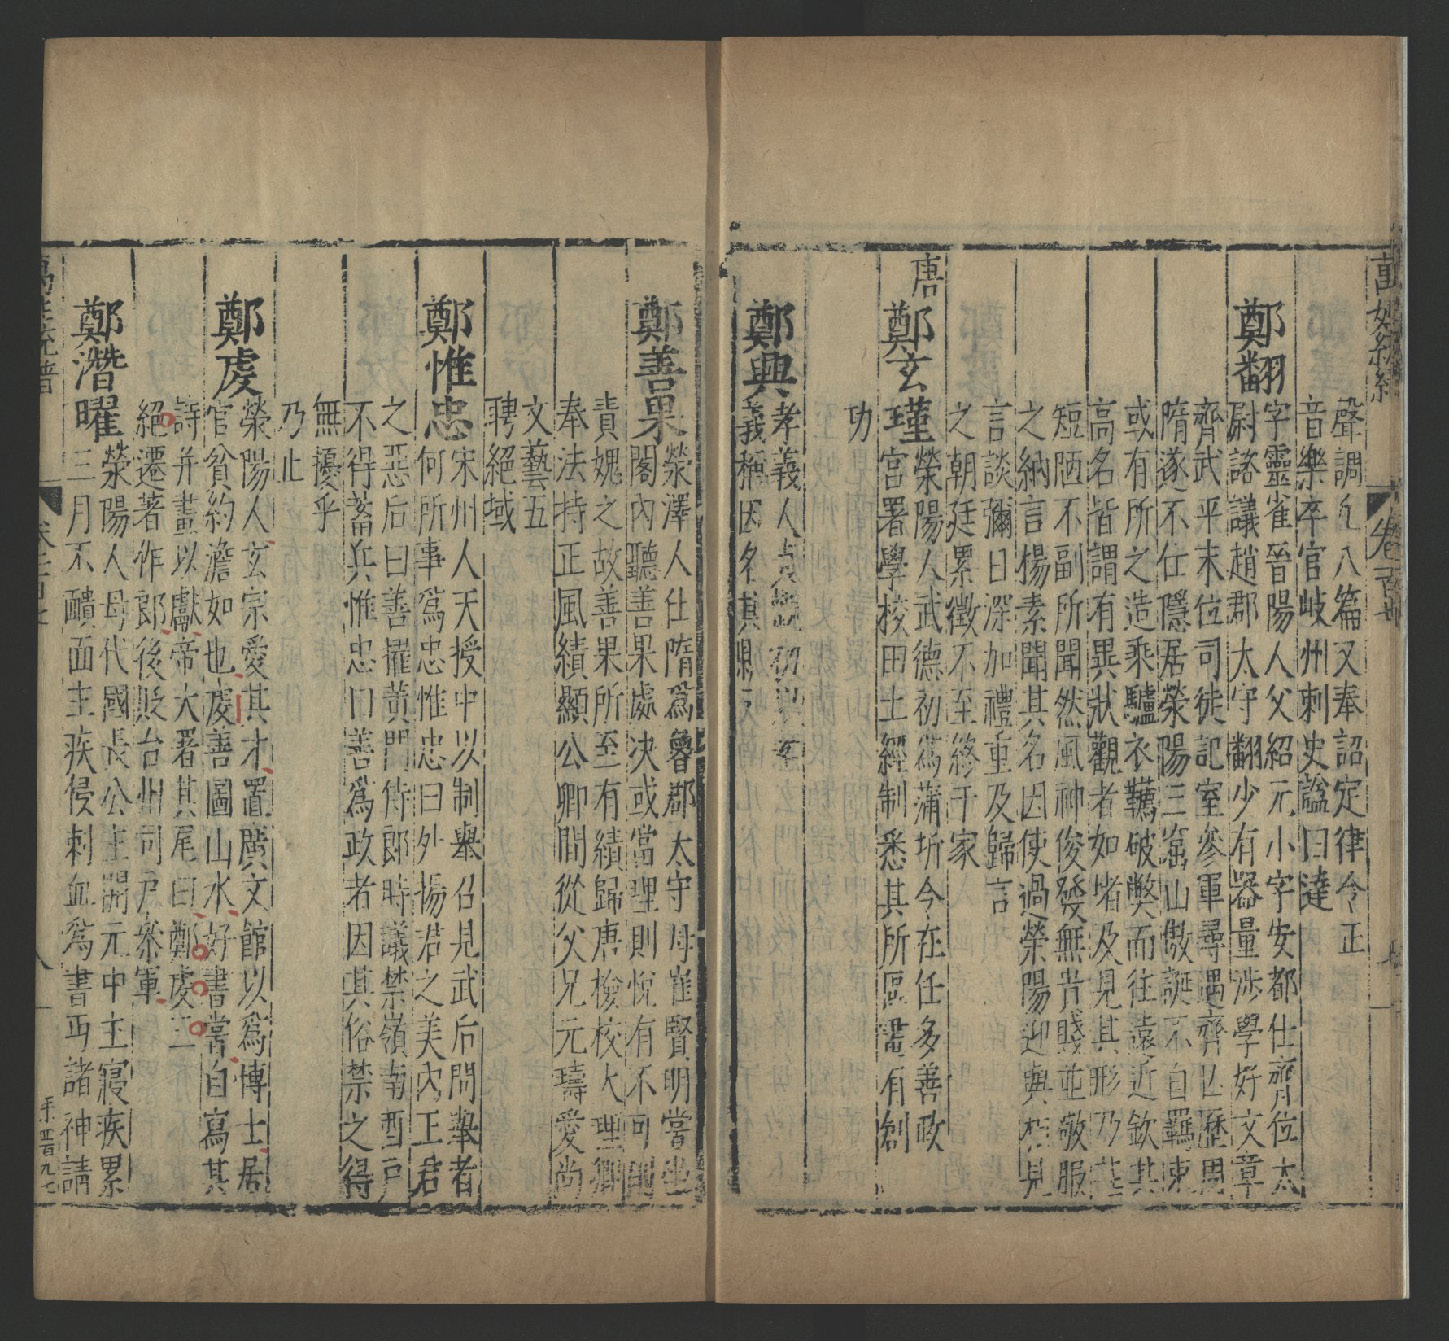 聲調凡八篇又奉詔定律令正
音樂卒官岐州刺史謚曰達
鄭翻
字靈雀晉陽人父紹元小字安都仕齊位太
尉諮議趙郡太守翻少有器量涉學好文章
齊武平末位司徒記室參軍尋遇齊亡歷周
隋遂不仕隱居滎陽三窟山傲誕不自羈束
或有所之造乘驢衣韉破弊而往遠近欽其
高名皆謂有異狀觀者如堵及見其形乃
短陋不副所聞然風神俊發無貴賤並敬服
之納言楊素聞其名因使過榮陽迎與相見
言談彌日深加禮重及歸言
之朝廷累徵不至終于家
唐
鄭玄瑾
榮陽人武德初為蒲圻令在任多善政
宮署學校田土經制悉其所區畫有創
功
鄭興
孝義人
義稱因名其縣
鄭善果
滎澤人仕隋為魯郡太守母崔賢明嘗坐
閣內聽善果處决或當理則悅有不可則
責媿之故善果所至有績歸唐檢校大理卿
奉法持正風績顯公卿間從父兄元璹愛尚
文藝五
聘絕域
鄭惟忠
宋州人天授中以制舉召見武后問舉者
何所事為忠惟忠曰外揚君之美內正君
之惡后曰善擢黃門侍郎時議禁嶺南酉戶
不得蓄兵惟忠曰善為政者因其俗禁之得
無擾乎
乃止
鄭虔
榮陽人玄宗愛其才置廣文館以為博士居
官貧約澹如也虔善圖山水好書嘗自寫其
詩并畫以獻帝大署其尾曰鄭虔三
絕遷著作郎後貶台州司戶參軍
鄭潛曜
滎陽人母代國長公主開元中主寢疾累
三月不靧面主疾侵刺血為書丐諸神請